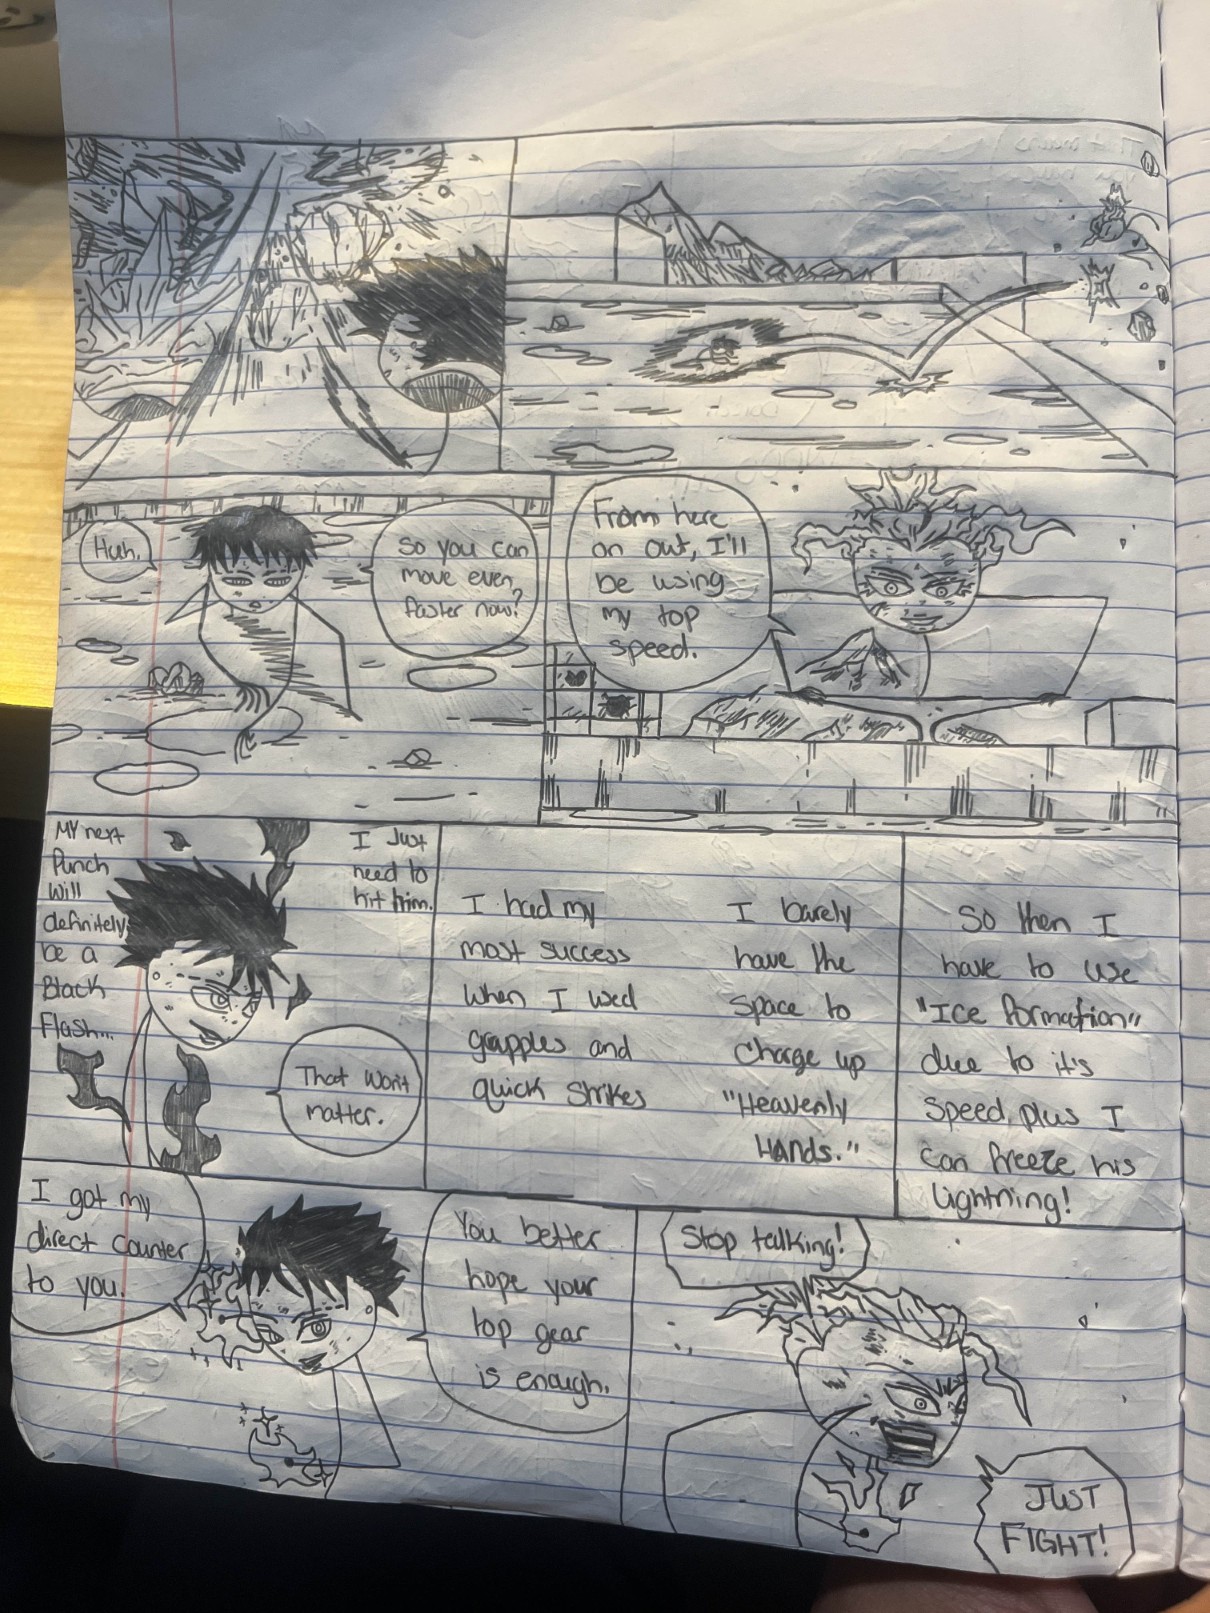 Huh.
So you can
move even
faster now?
From here
on out, I'll
be using
my top
speed.
MY next
Punch
will
definitely
be a
Black
Flash...
I Just
need to
hit him.
That won't
matter.
I had my
most success
when I used
grapples and
quick strikes
I barely
have the
space to
Charge up
"Heavenly
HANDS."
So then I
have to use
"Ice formation"
due to it's
speed, plus I
can freeze his
lightning!
I got my
direct counter
to you.
You better
hope your
top gear
is enough.
Stop talking!
JUST
FIGHT!